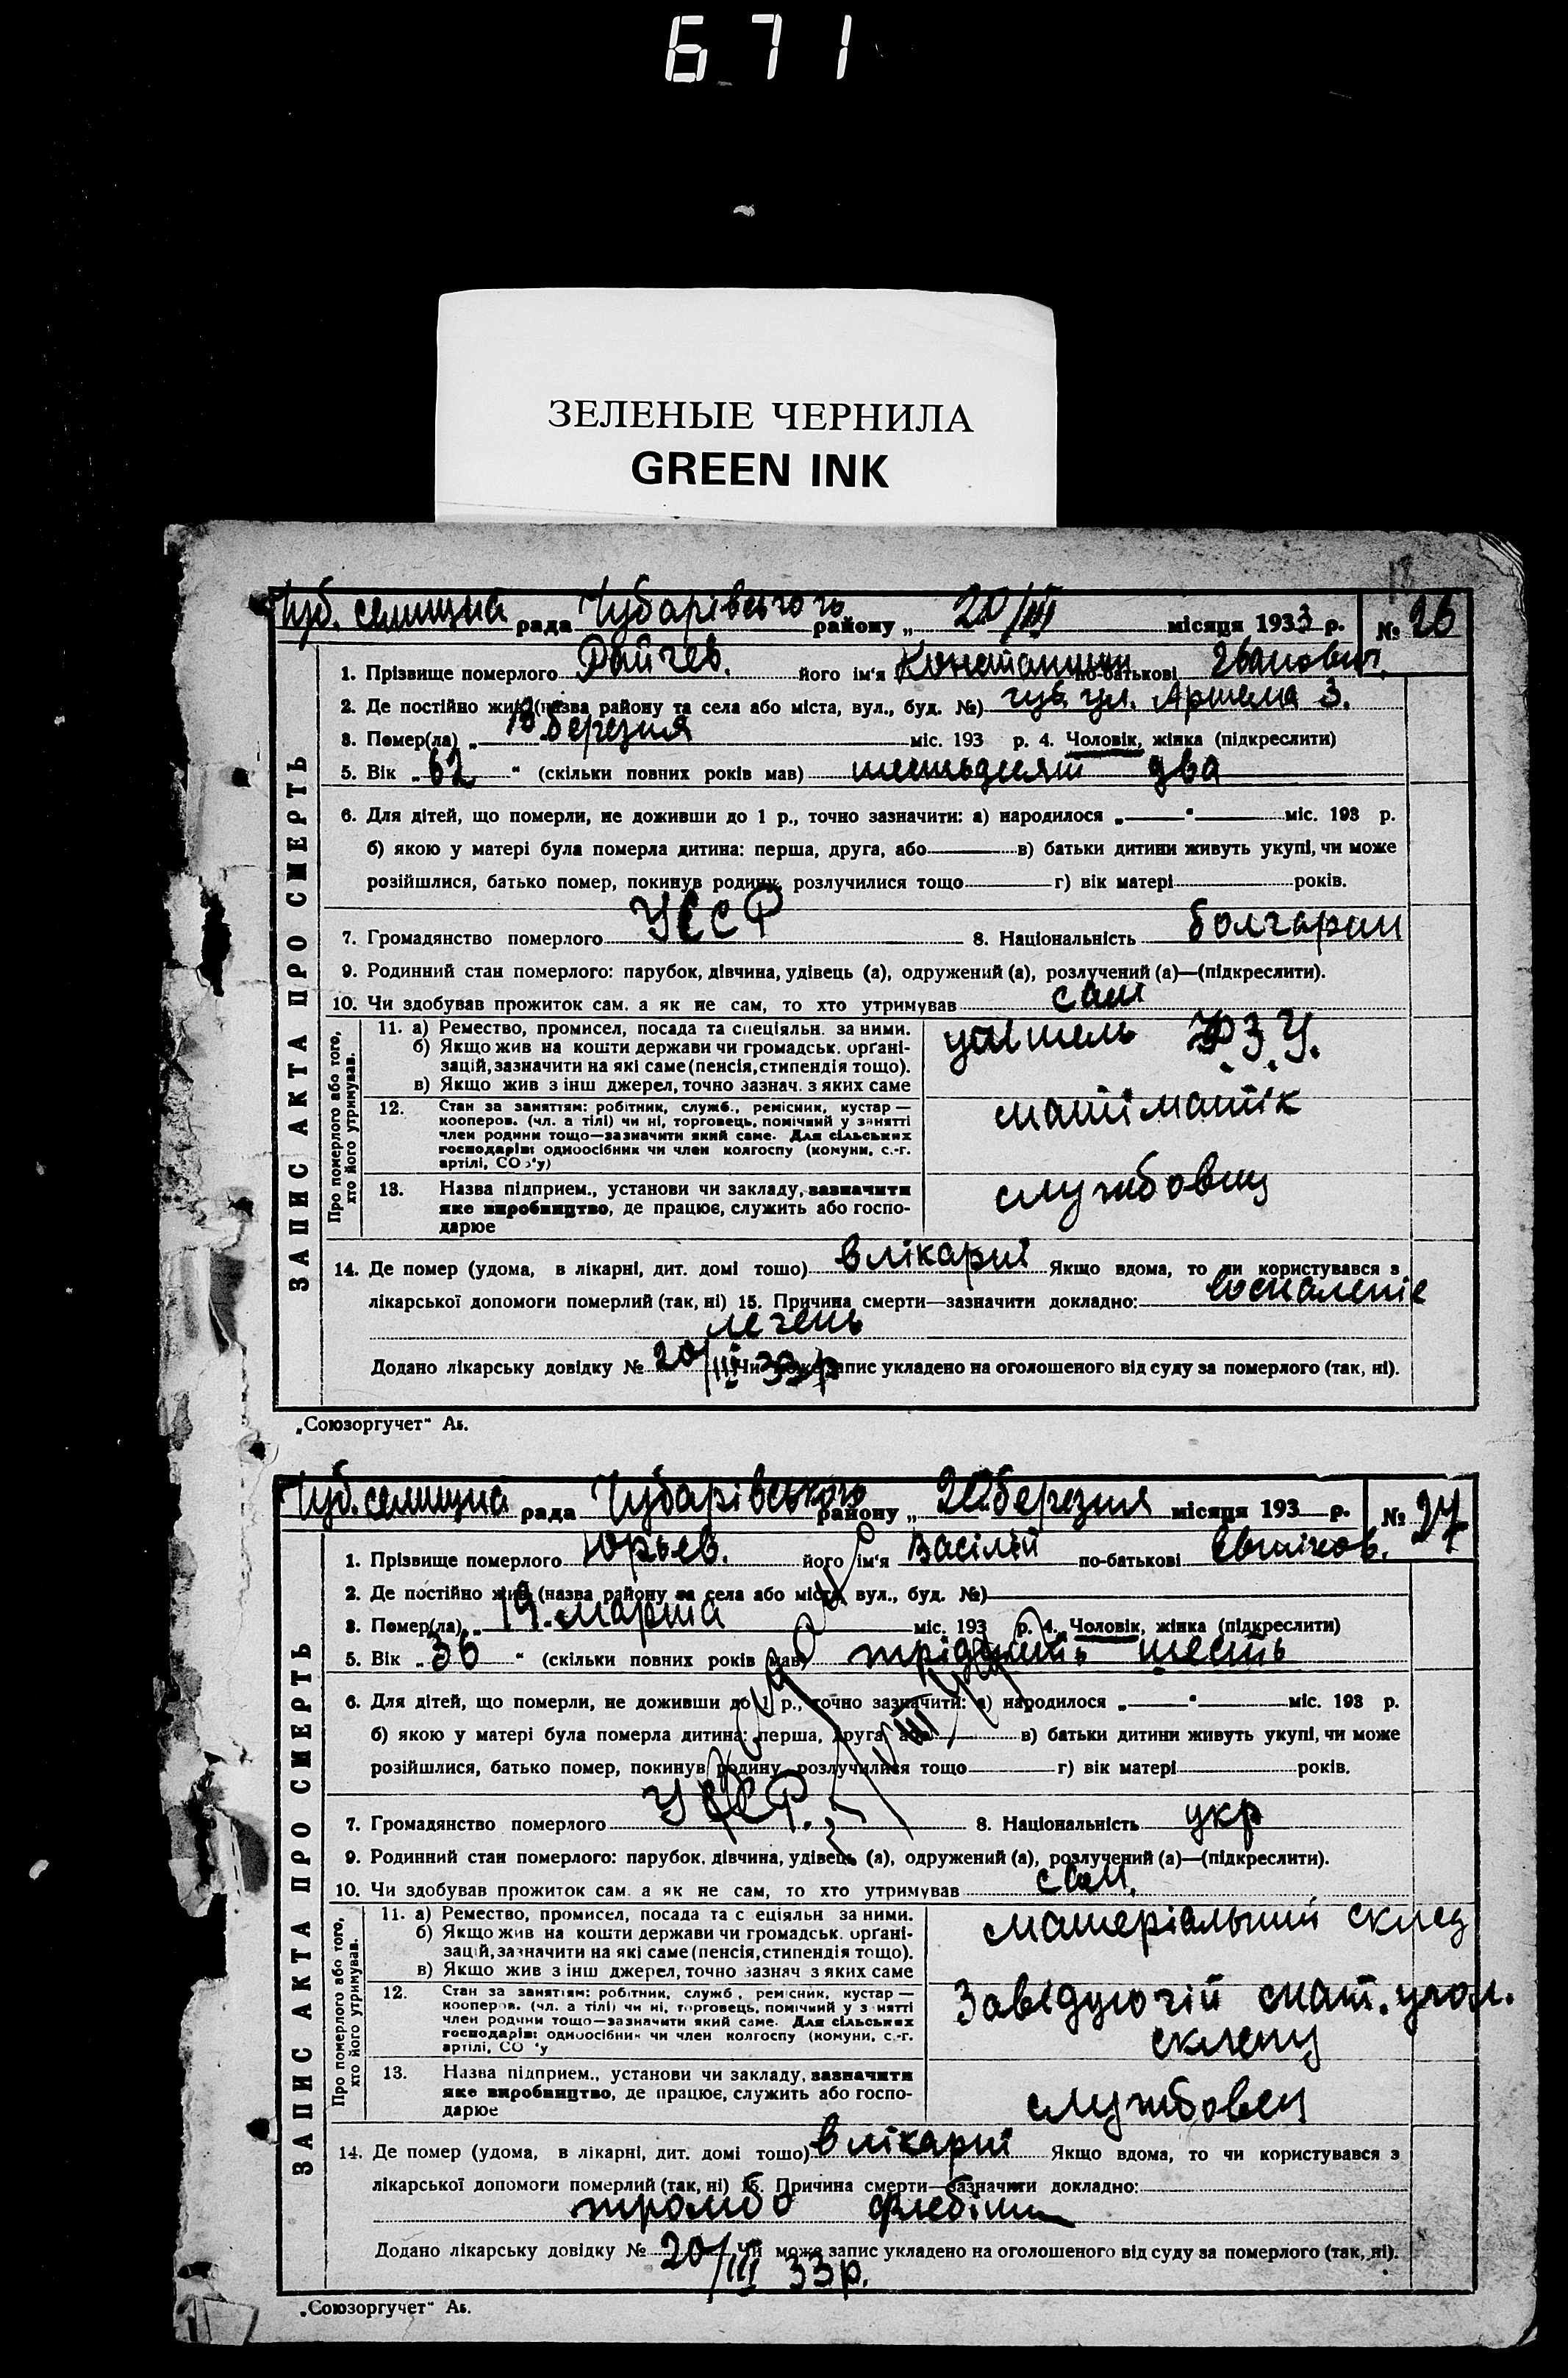 671
ЗЕЛЕНЫЕ ЧЕРНИЛА
GREEN INK
Чуб. селищна рада Чубарівського району „ 20/III місяця 1933 р. № 26
1. Прізвище померлого Райчев. його ім'я Константин по-батькові Іванович.
2. Де постійно жив (назва району та села або міста, вул., буд. №) Чуб. ул. Артема 3.
3. Помер(ла) „ 18 березня міс. 193 р. 4. Чоловік, жінка (підкреслити)
5. Вік „ 62 “ (скільки повних років мав) шестьдесят два
6. Для дітей, що померли, не доживши до 1 р., точно зазначити: а) народилося „ “ міс. 193 р.
б) якою у матері була померла дитина: перша, друга, або в) батьки дитини живуть укупі, чи може
розійшлися, батько помер, покинув родину, розлучилися тощо г) вік матері років.
7. Громадянство померлого УССР 8. Національність болгарин
9. Родинний стан померлого: парубок, дівчина, удівець (а), одружений (а), розлучений (а)—(підкреслити).
10. Чи здобував прожиток сам, а як не сам, то хто утримував сам
ЗАПИС АКТА ПРО СМЕРТЬ
Про померлого або того,
хто його утримував.
11. а) Ремество, промисел, посада та спеціяльн. за ними.
б) Якщо жив на кошти держави чи громадськ. орґані-
зацій, зазначити на які саме (пенсія, стипендія тощо).
в) Якщо жив з інш джерел, точно зазнач. з яких саме
учитель Ф.З.У.
12. Стан за заняттям: робітник, служб., ремісник, кустар —
кооперов. (чл. а тілі) чи ні, торговець, помічний у занятті
член родини тощо—зазначити який саме. Для сільських
господарів: одноосібник чи член колгоспу (комуни, с.-г.
артілі, СО з'у)
матіматік
13. Назва підприєм., установи чи закладу, зазначити
яке виробництво, де працює, служить або госпо-
дарює
службовец
14. Де помер (удома, в лікарні, дит. домі тошо) в лікарні Якщо вдома, то чи користувався з
лікарської допомоги померлий (так, ні) 15. Причина смерти—зазначити докладно: воспаленіє
лечень
Додано лікарську довідку № 20/III 33 р Чи може запис укладено на оголошеного від суду за померлого (так, ні).
„Союзоргучет“ Аб.
Чуб. селищна рада Чубарівського району „ 20 березня місяця 193 р. № 27
1. Прізвище померлого Юрьев. його ім'я Васілій по-батькові
2. Де постійно жив (назва району та села або міста, вул., буд. №)
3. Помер(ла) „ 19 марта міс. 193 р. 4. Чоловік, жінка (підкреслити)
5. Вік „ 36 “ (скільки повних років мав) трідцать шесть
6. Для дітей, що померли, не доживши до 1 р., точно зазначити: а) народилося „ “ міс. 193 р.
б) якою у матері була померла дитина: перша, друга, або в) батьки дитини живуть укупі, чи може
розійшлися, батько помер, покинув родину, розлучилися тощо г) вік матері років.
7. Громадянство померлого УССР. 8. Національність укр
9. Родинний стан померлого: парубок, дівчина, удівець (а), одружений (а), розлучений (а)—(підкреслити).
10. Чи здобував прожиток сам, а як не сам, то хто утримував сам.
ЗАПИС АКТА ПРО СМЕРТЬ
Про померлого або того,
хто його утримував.
11. а) Ремество, промисел, посада та с еціяльн за ними.
б) Якщо жив на кошти держави чи громадськ. орґані-
зацій, зазначити на які саме (пенсія, стипендія тощо).
в) Якщо жив з інш джерел, точно зазнач з яких саме
матеріальний склед
12. Стан за заняттям: робітник, служб., ремісник, кустар —
кооперов. (чл. а тілі) чи ні, торговець, помічний у занятті
член родини тощо—зазначити який саме. Для сільських
господарів: одноосібник чи член колгоспу (комуни, с.-г.
артілі, СО 'у
Завідуючій мат.
склепу
13. Назва підприєм., установи чи закладу, зазначити
яке виробництво, де працює, служить або госпо-
дарює
службовец
14. Де помер (удома, в лікарні, дит. домі тошо) в лікарні Якщо вдома, то чи користувався з
лікарської допомоги померлий (так, ні) 15. Причина смерти—зазначити докладно:
тромбо флебіт
Додано лікарську довідку № 20/III 33 р. Чи може запис укладено на оголошеного від суду за померлого (так, ні).
„Союзоргучет“ Аб.